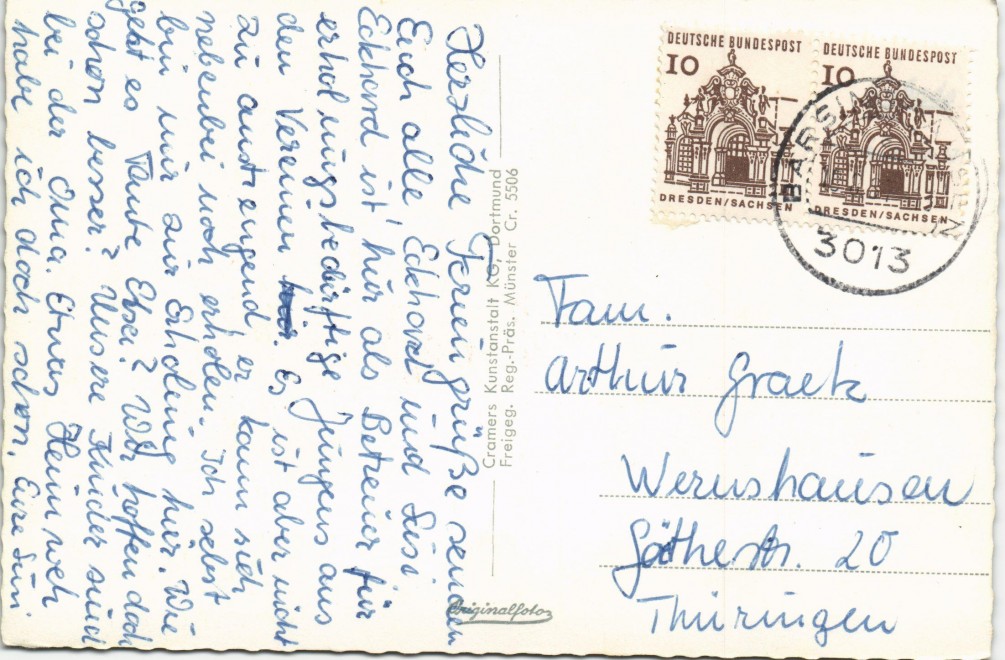 Herzliche Feriengrüße senden
Euch alle Eckhard und Sisi
Eckhard ist hier als Betreuer für
erholungsbedürftige Jungens aus
den Vereinen. Es ist aber nicht
zu anstrengend, er kann sich
nebenbei noch erholen. Ich selbst
bin nur zur Erholung hier. Wie
geht es Tante Elsa? Wir hoffen doch
schon besser? Unsere Kinder sind
bei der Oma. Etwas Heimweh
habe ich doch schon. Eure
Cramers Kunstanstalt KG, Dortmund
Freigeg. Reg.-Präs. Münster Cr. 5506
Originalfoto
DEUTSCHE BUNDESPOST
10
DRESDEN/SACHSEN
DEUTSCHE BUNDESPOST
10
DRESDEN/SACHSEN
3013
Fam.
Arthur Graek
Wernshausen
Göthestr. 20
Thüringen